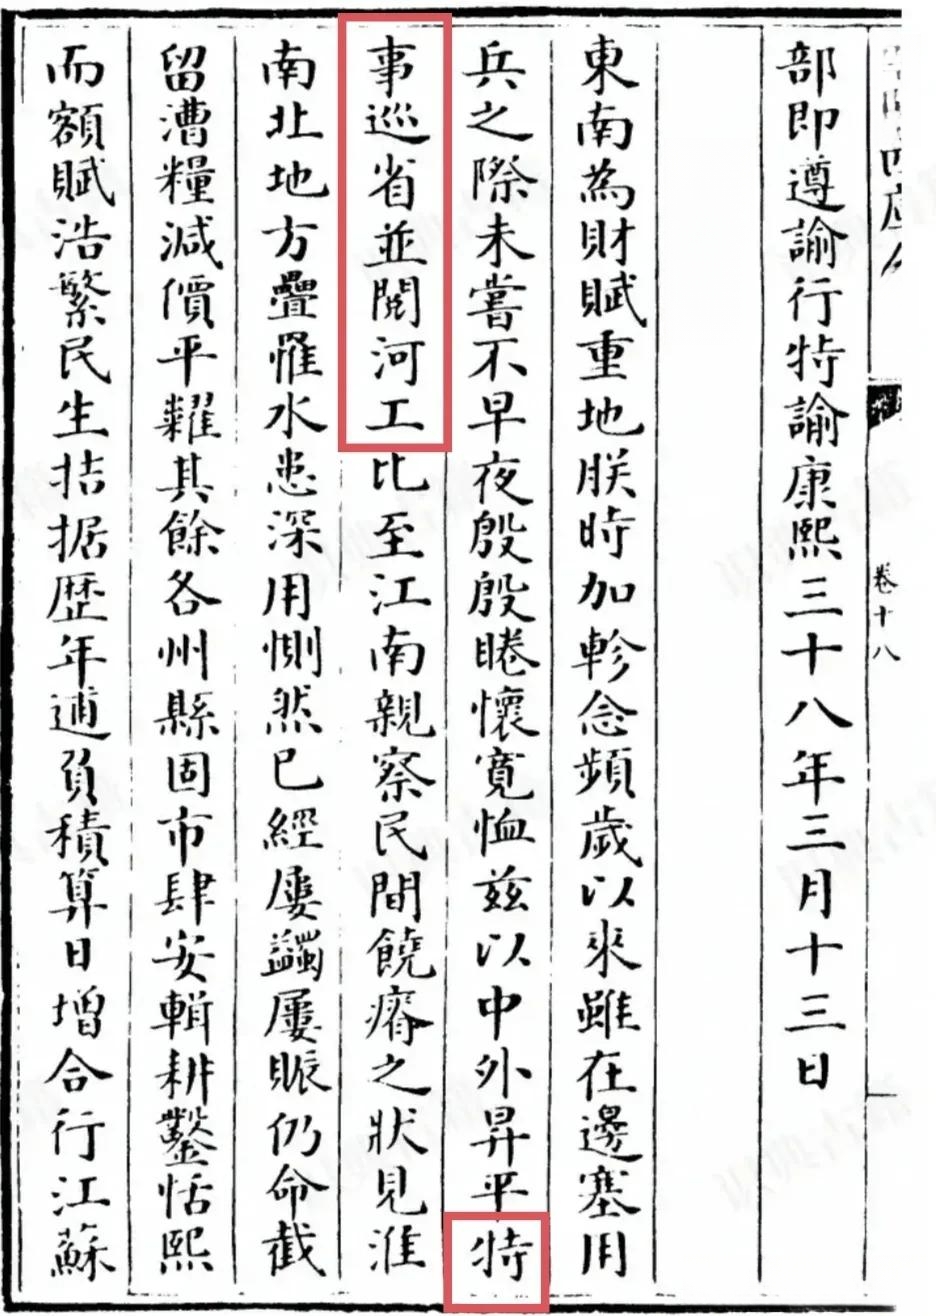 卷十八
部即遵諭行特諭康熙三十八年三月十三日
東南為財賦重地朕時加軫念頻歲以來雖在邊塞用
兵之際未嘗不早夜殷殷睠懷寬恤兹以中外昇平特
事巡省並閱河工比至江南親察民間饒瘠之狀見淮
南北地方疊罹水患深用惻然已經屢蠲屢賑仍命截
留漕糧減價平糶其餘各州縣固市肆安輯耕鑿恬熙
而額賦浩繁民生拮据歴年逋負積算日增合行江蘇